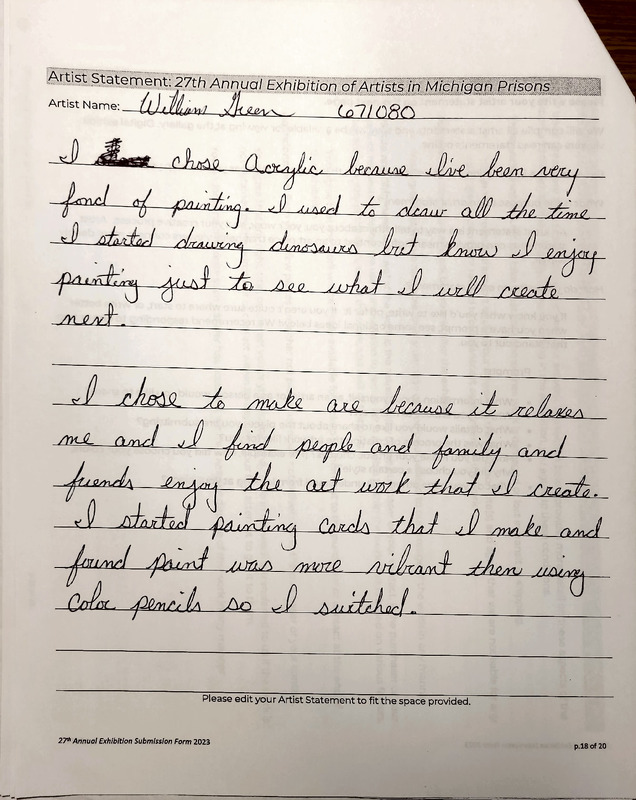 Artist Statement: 27th Annual Exhibition of Artists in Michigan Prisons
Artist Name: William Green 671080
I chose Acrylic because I've been very
fond of painting. I used to draw all the time
I started drawing dinosaurs but know I enjoy
painting just to see what I will create
next.
I chose to make are because it relaxes
me and I find people and family and
friends enjoy the art work that I create.
I started painting cards that I make and
found paint was more vibrant then using
color pencils so I switched.
Please edit your Artist Statement to fit the space provided.
27th Annual Exhibition Submission Form 2023
p.18 of 20